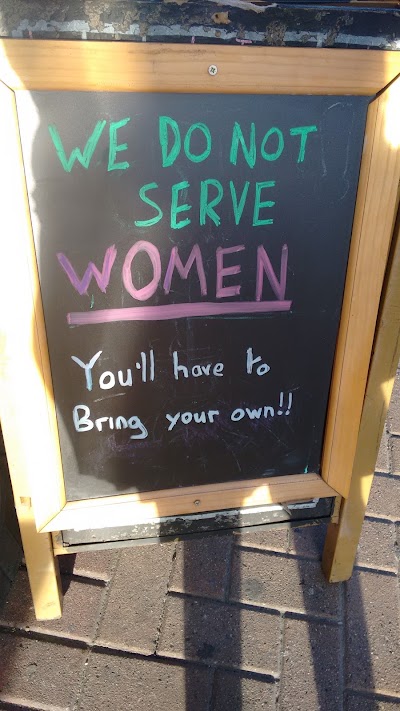 WE DO NOT
SERVE
WOMEN
You'll have to
Bring your own!!